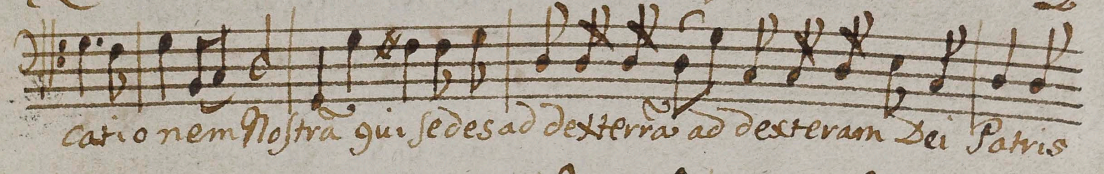 catio nem Nostrã qui sedes ad dexterrã ad dexteram Dei Patris